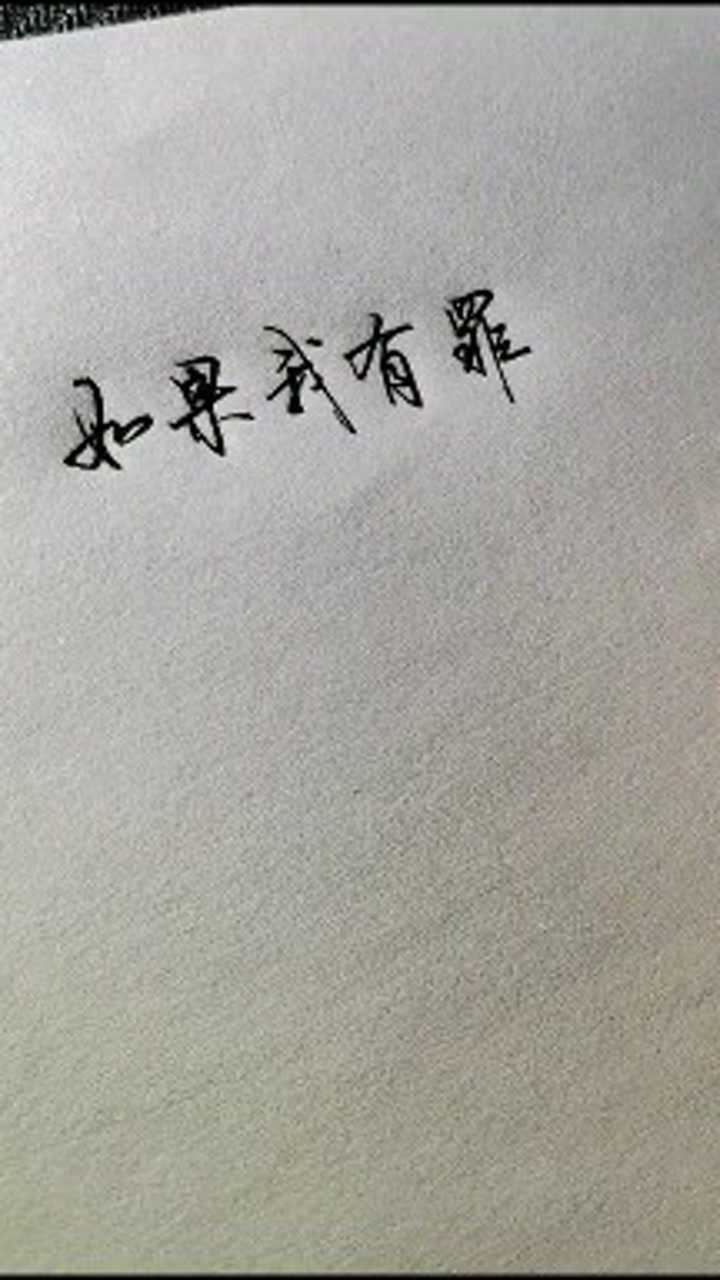 如果我有罪